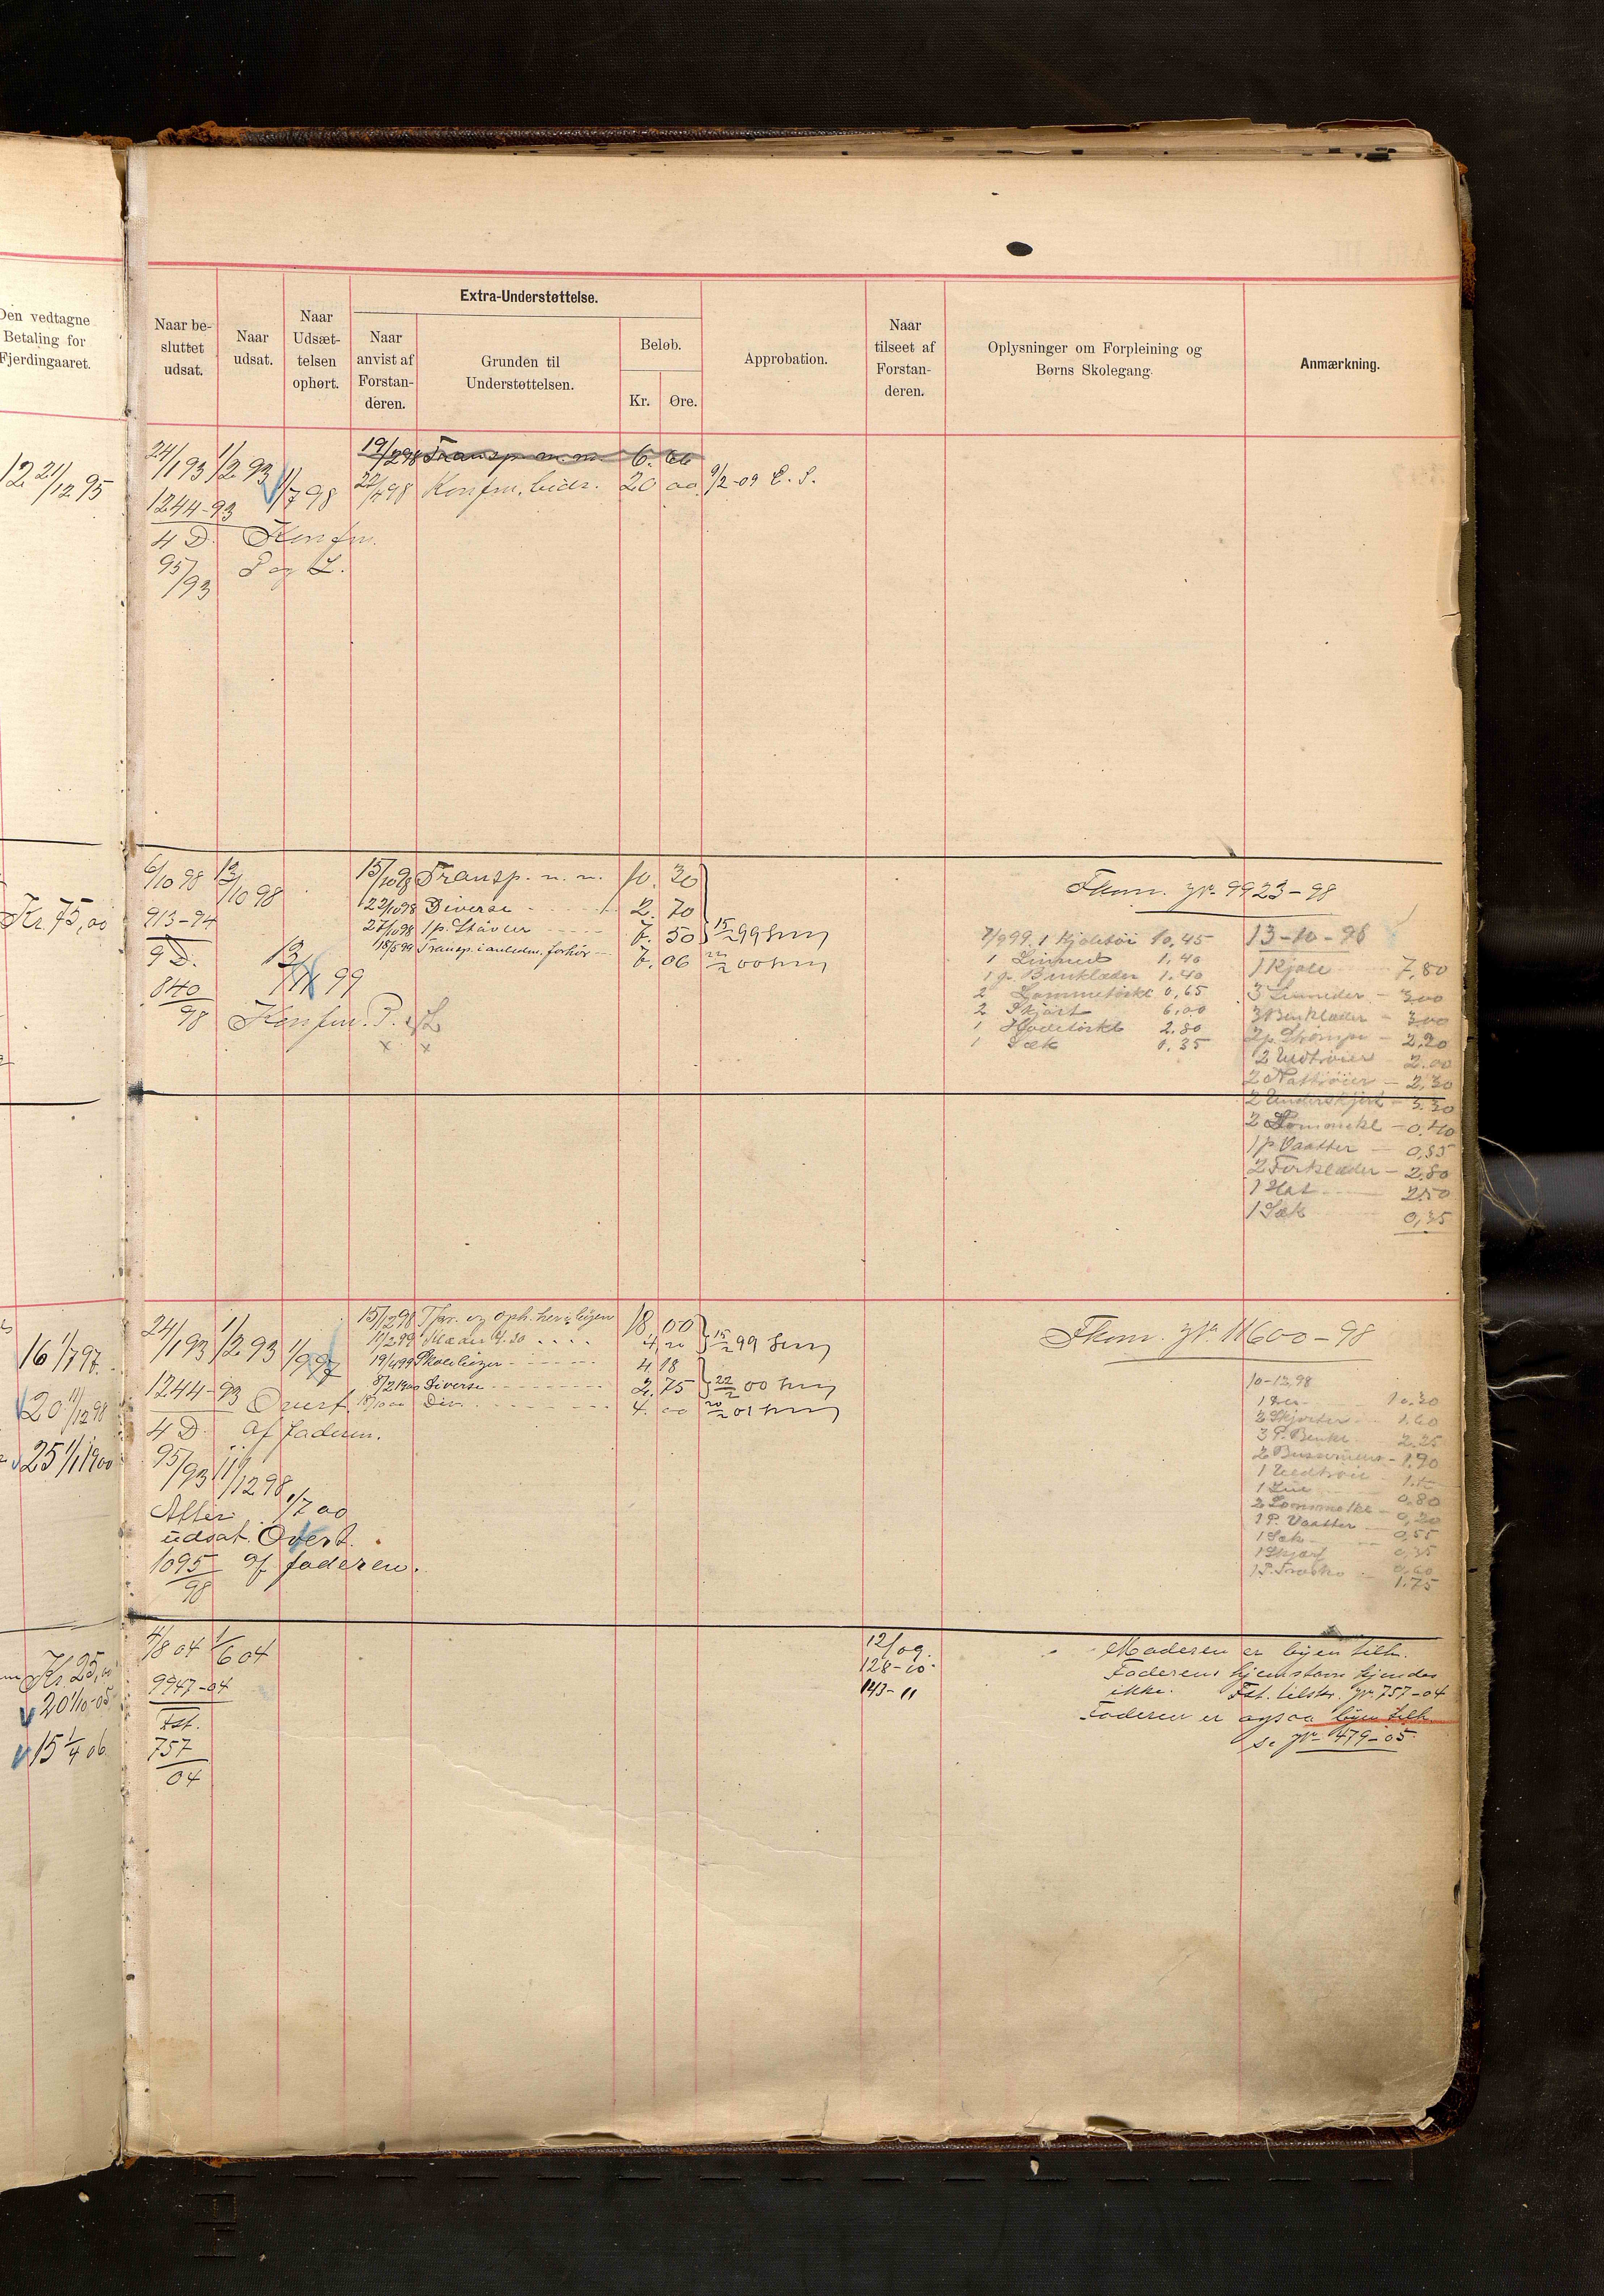 Den vedtagne
Betaling for
Fjerdingaaret.
Naar be-
sluttet
udsat.
Naar
udsat.
Naar
Udsæt-
telsen
ophørt.
Extra-Understøttelse.
Naar
anvist af
Forstan-
deren.
Grunden til
Understøttelsen.
Beløb.
Kr.
Øre.
Approbation.
Naar
tilseet af
Forstan-
deren.
Oplysninger om Forpleining og
Børns Skolegang.
Anmærkning.
12 21/12 95
24/1 93 1/2 93 1/7 98
1244-93
4 D. Konfm.
95/93 P og L.
19/2 98 Transp. m. m. 6.
22/4 98 Konfm. bidr. 20 00 9/2-09
Kr. 75,00
6/10 98 13/10 98
913-94
9 D.
840/98
99
Konfm. P.
15/10 98 Transp. m. m. 10. 30
22/10 98 Diverse 2. 70
27/10 98 1 p. Støvler 7. 50 15/2 99
18/5 99 Transp. i anledn. forhør 6. 06 00
Fkom. jr. 9923-98
7/9 99. 1 Kjoletøi 10,45
1 Linned 1,40
1 p. Benklæder 1.40
2 Lommetørkl 0,65
2 Skjørt 6,00
1 Hodetørkl 2.80
1 Sæk 0.35
13-10-98
1 Kjole 7,80
3 Linneder 3,00
3 Benklæder 3,00
2 p. Strømper 2,20
2 Uldtrøier 2.00
2 Nattrøier 2,30
2 Underskjørt 3.30
2 Lommetkl 0,40
1 p. Vaatter 0,85
2 Forklæder 2,80
1 Hat 2,50
1 Sæk 0,35
16 1/7 97
20 11/12 98
25 1/1 1900
24/1 93 1/2 93 1/9 97
1244-93 Overt.
4 D. af faderen.
95/93 11/12 98
Atter 1/7 00
udsat. Overt.
1095/98 af faderen.
15/12 98 Tpr. og oph. her i byen 18 00
11/2 99 4 20 15/2 99
19/4 99 Skolebøger 4 18
8/2 1900 Diverse 2. 75 22/2 00
18/10 00 Div. 4. 00 20/2 01
Fkom. jr. 11600-98
10-12 98
10.20
2 Skjorter 1.60
3 P. Benkl. 2.25
2 Busseruner 1.90
1 Uldtrøie
1 Lue 0.80
2 Lommetkl 0,20
1 P. Vaatter 0,55
1 Sæk 0,35
1 Skjærf 0,60
1 P. Træsko 1.75
Kr. 25,00
20 1/10-05
15 1/4 06
4/8 04 1/6 04
9947-04
Fst.
757
04
12/09.
128-10.
143-11
Moderen er byen tilh.
Faderens hjemstavn kjendes
ikke. Fst. tilstr. jr. 757-04
Faderen er ogsaa byen tilh.
se jr. 479-05